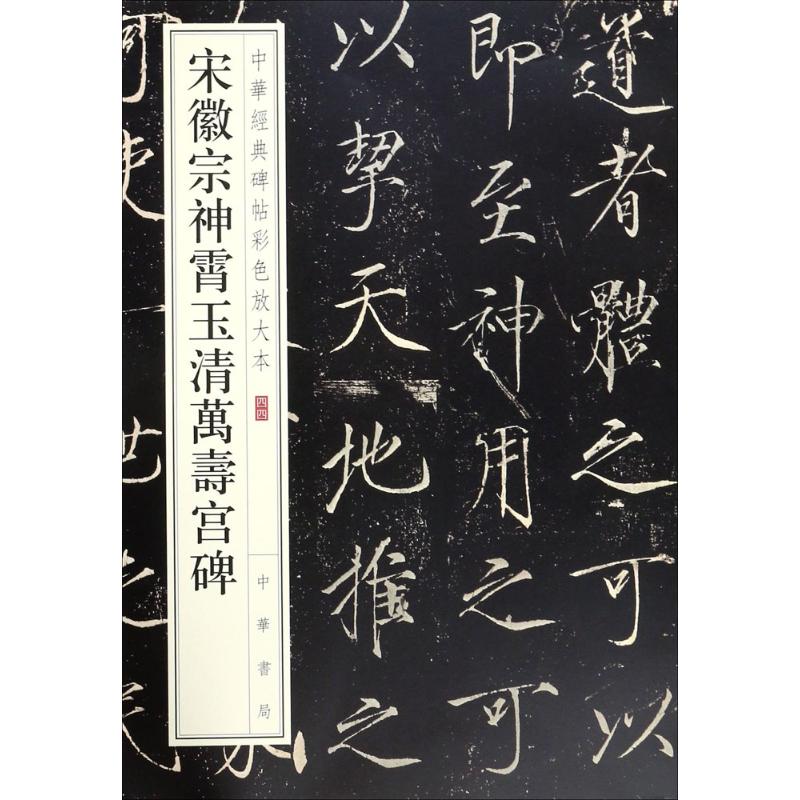 道者體之可以
即至神用之可
以挈天地推之
可使一世之民
中華經典碑帖彩色放大本 四四
中華書局
宋徽宗神霄玉清萬壽宫碑